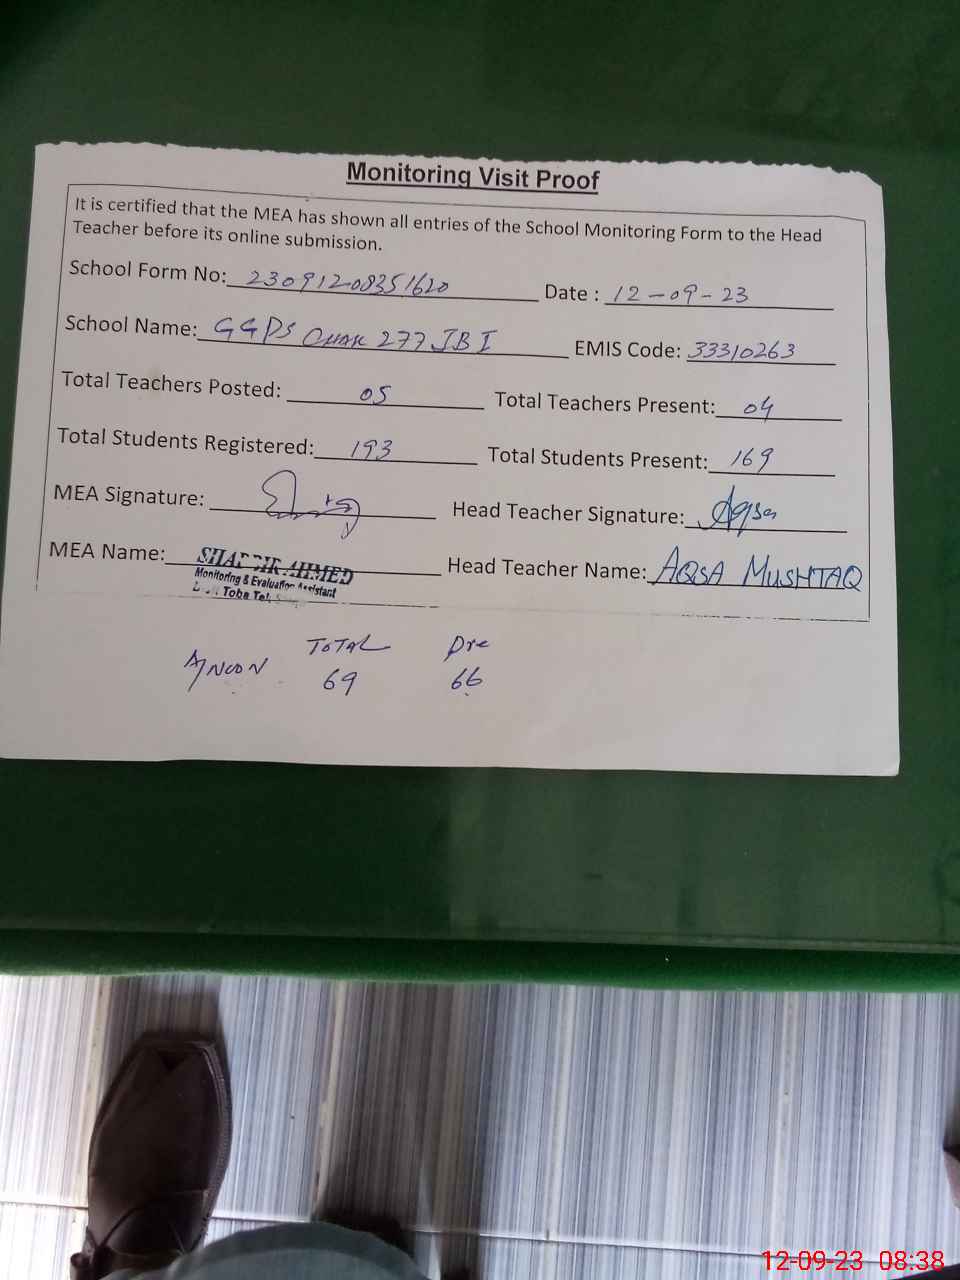 Monitoring Visit Proof
It is certified that the MEA has shown all entries of the School Monitoring Form to the Head
Teacher before its online submission.
School Form No: 23091208351620 Date : 12-09-23
School Name: GGPS CHAK 277 JB I EMIS Code: 33310263
Total Teachers Posted: 05 Total Teachers Present: 04
Total Students Registered: 193 Total Students Present: 169
MEA Signature: Head Teacher Signature: Aqsa
MEA Name: SHABBIR AHMED Head Teacher Name: AQSA MUSHTAQ
Monitoring & Evaluation Assistant
Toba Tek
TOTAL Pre
A/NOON 69 66
12-09-23 08:38